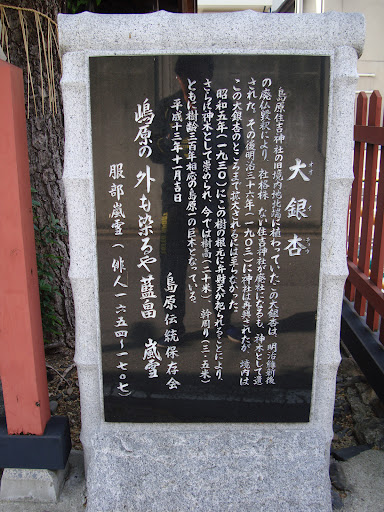 大銀杏
島原住吉神社の旧境内地北端に植わっていたこの大銀杏は、明治維新後
の廃仏毀釈により、社格株 ない住吉神社が廃社になるも、神木として遺
された。その後明治三十六年(一九〇三)に神社は再興されたが 境内は
この大銀杏のところまで拡大されるには至らなかった。
昭和五年(一九三〇)にこの樹の根元に弁財天が祀られることにより、
さらに神木として崇められ、今では樹高(二十米)、幹周り(三・五米)
ともに樹齢三百年相応の島原一の巨木となっている。
平成十三年十一月吉日
島原伝統保存会
嶋原の 外も染るや藍畠 嵐雪
服部嵐雪(俳人一六五四〜一七〇七)